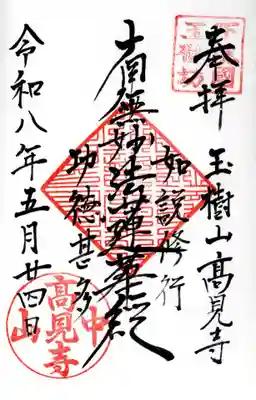 奉拝
玉樹山高見寺
如説修行
南無妙法蓮華経
功徳甚多
令和八年五月廿四日
高見寺
中山